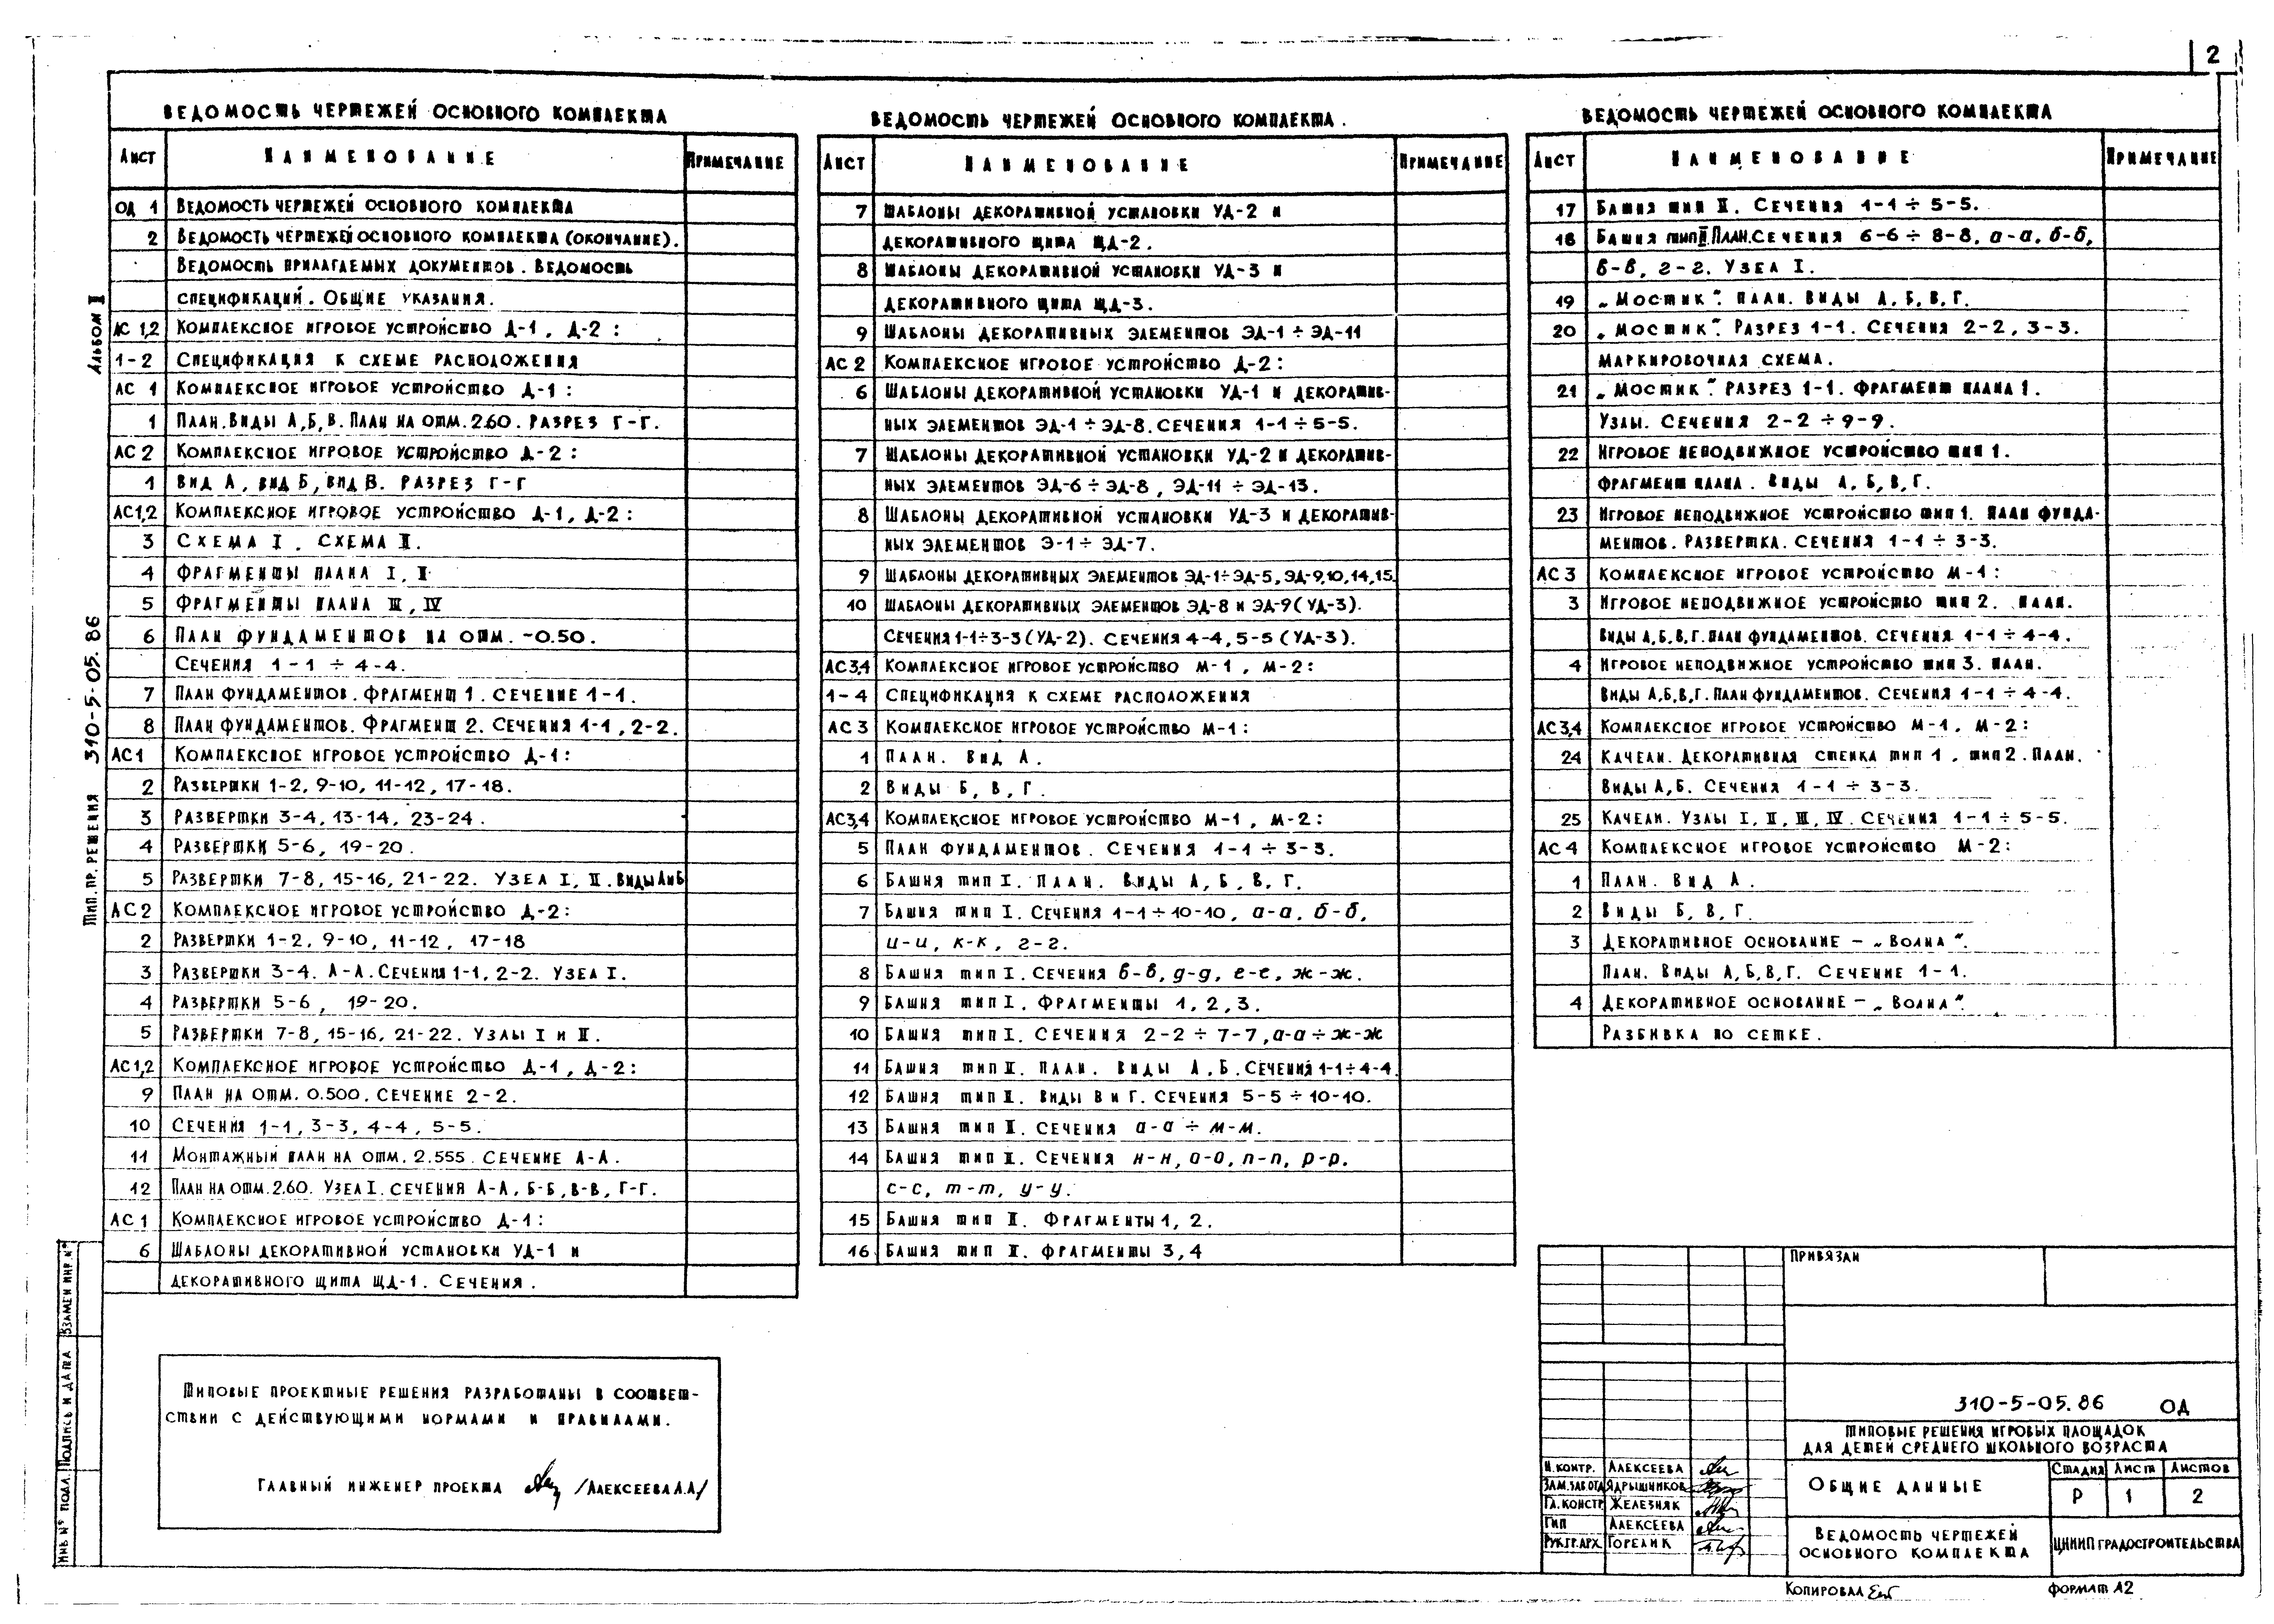 2
Альбом I
Тип. пр. решения 310-5-05.86
Инв № подл. Подпись и дата Взамен инв. №
Ведомость чертежей основного комплекта
Лист Наименование Примечание
ОД 1 Ведомость чертежей основного комплекта
2 Ведомость чертежей основного комплекта (окончание).
Ведомость прилагаемых документов. Ведомость
спецификаций. Общие указания.
АС 1,2 Комплексное игровое устройство Д-1, Д-2:
1-2 Спецификация к схеме расположения
АС 1 Комплексное игровое устройство Д-1:
1 План. Виды А, Б, В. План на отм. 2.60. Разрез Г-Г.
АС 2 Комплексное игровое устройство Д-2:
1 Вид А, вид Б, вид В. Разрез Г-Г
АС 1,2 Комплексное игровое устройство Д-1, Д-2:
3 Схема I. Схема II.
4 Фрагменты плана I, II
5 Фрагменты плана III, IV
6 План фундаментов на отм. -0.50.
Сечения 1-1 ÷ 4-4.
7 План фундаментов. Фрагмент 1. Сечение 1-1.
8 План фундаментов. Фрагмент 2. Сечения 1-1, 2-2.
АС 1 Комплексное игровое устройство Д-1:
2 Развертки 1-2, 9-10, 11-12, 17-18.
3 Развертки 3-4, 13-14, 23-24.
4 Развертки 5-6, 19-20.
5 Развертки 7-8, 15-16, 21-22. Узел I, II. Виды А и Б
АС 2 Комплексное игровое устройство Д-2:
2 Развертки 1-2, 9-10, 11-12, 17-18
3 Развертки 3-4. А-А. Сечения 1-1, 2-2. Узел I.
4 Развертки 5-6, 19-20.
5 Развертки 7-8, 15-16, 21-22. Узлы I и II.
АС 1,2 Комплексное игровое устройство Д-1, Д-2:
9 План на отм. 0.500. Сечение 2-2.
10 Сечения 1-1, 3-3, 4-4, 5-5.
11 Монтажный план на отм. 2.555. Сечение А-А.
12 План на отм. 2.60. Узел I. Сечения А-А, Б-Б, В-В, Г-Г.
АС 1 Комплексное игровое устройство Д-1:
6 Шаблоны декоративной установки УД-1 и
декоративного щита ЩД-1. Сечения.
Ведомость чертежей основного комплекта.
Лист Наименование Примечание
7 Шаблоны декоративной установки УД-2 и
декоративного щита ЩД-2.
8 Шаблоны декоративной установки УД-3 и
декоративного щита ЩД-3.
9 Шаблоны декоративных элементов ЭД-1 ÷ ЭД-11
АС 2 Комплексное игровое устройство Д-2:
6 Шаблоны декоративной установки УД-1 и декоратив-
ных элементов ЭД-1 ÷ ЭД-8. Сечения 1-1 ÷ 5-5.
7 Шаблоны декоративной установки УД-2 и декоратив-
ных элементов ЭД-6 ÷ ЭД-8, ЭД-11 ÷ ЭД-13.
8 Шаблоны декоративной установки УД-3 и декоратив-
ных элементов Э-1 ÷ ЭД-7.
9 Шаблоны декоративных элементов ЭД-1÷ЭД-5, ЭД-9,10,14,15.
10 Шаблоны декоративных элементов ЭД-8 и ЭД-9 (УД-3).
Сечения 1-1÷3-3 (УД-2). Сечения 4-4, 5-5 (УД-3).
АС 3,4 Комплексное игровое устройство М-1, М-2:
1-4 Спецификация к схеме расположения
АС 3 Комплексное игровое устройство М-1:
1 План. Вид А.
2 Виды Б, В, Г.
АС 3,4 Комплексное игровое устройство М-1, М-2:
5 План фундаментов. Сечения 1-1 ÷ 3-3.
6 Башня тип I. План. Виды А, Б, В, Г.
7 Башня тип I. Сечения 1-1 ÷ 10-10, а-а, б-б,
и-и, к-к, г-г.
8 Башня тип I. Сечения в-в, д-д, е-е, ж-ж.
9 Башня тип I. Фрагменты 1, 2, 3.
10 Башня тип I. Сечения 2-2 ÷ 7-7, а-а ÷ ж-ж
11 Башня тип II. План. Виды А, Б. Сечения 1-1÷4-4.
12 Башня тип II. Виды В и Г. Сечения 5-5 ÷ 10-10.
13 Башня тип II. Сечения а-а ÷ м-м.
14 Башня тип II. Сечения н-н, о-о, п-п, р-р.
с-с, т-т, у-у.
15 Башня тип II. Фрагменты 1, 2.
16 Башня тип II. Фрагменты 3, 4
Ведомость чертежей основного комплекта
Лист Наименование Примечание
17 Башня тип II. Сечения 1-1 ÷ 5-5.
18 Башня тип II. План. Сечения 6-6 ÷ 8-8, а-а, б-б,
в-в, г-г. Узел I.
19 „Мостик". План. Виды А, Б, В, Г.
20 „Мостик". Разрез 1-1. Сечения 2-2, 3-3.
Маркировочная схема.
21 „Мостик". Разрез 1-1. Фрагмент плана 1.
Узлы. Сечения 2-2 ÷ 9-9.
22 Игровое неподвижное устройство тип 1.
Фрагмент плана. Виды А, Б, В, Г.
23 Игровое неподвижное устройство тип 1. План фунда-
ментов. Развертка. Сечения 1-1 ÷ 3-3.
АС 3 Комплексное игровое устройство М-1:
3 Игровое неподвижное устройство тип 2. План.
Виды А, Б, В, Г. План фундаментов. Сечения 1-1 ÷ 4-4.
4 Игровое неподвижное устройство тип 3. План.
Виды А, Б, В, Г. План фундаментов. Сечения 1-1 ÷ 4-4.
АС 3,4 Комплексное игровое устройство М-1, М-2:
24 Качели. Декоративная стенка тип 1, тип 2. План.
Виды А, Б. Сечения 1-1 ÷ 3-3.
25 Качели. Узлы I, II, III, IV. Сечения 1-1 ÷ 5-5.
АС 4 Комплексное игровое устройство М-2:
1 План. Вид А.
2 Виды Б, В, Г.
3 Декоративное основание — „Волна".
План. Виды А, Б, В, Г. Сечение 1-1.
4 Декоративное основание — „Волна".
Разбивка по сетке.
Типовые проектные решения разработаны в соответ-
ствии с действующими нормами и правилами.
Главный инженер проекта /Алексеева Л.А./
Привязан
310-5-05.86 ОД
Типовые решения игровых площадок
для детей среднего школьного возраста
Н.контр. Алексеева
Зам.зав отд Ядрышников
Гл.констр Железняк
ГИП Алексеева
Рук.гр.арх. Горелик
Общие данные
Стадия Лист Листов
Р 1 2
Ведомость чертежей
основного комплекта
ЦНИИП градостроительства
Копировал
формат А2